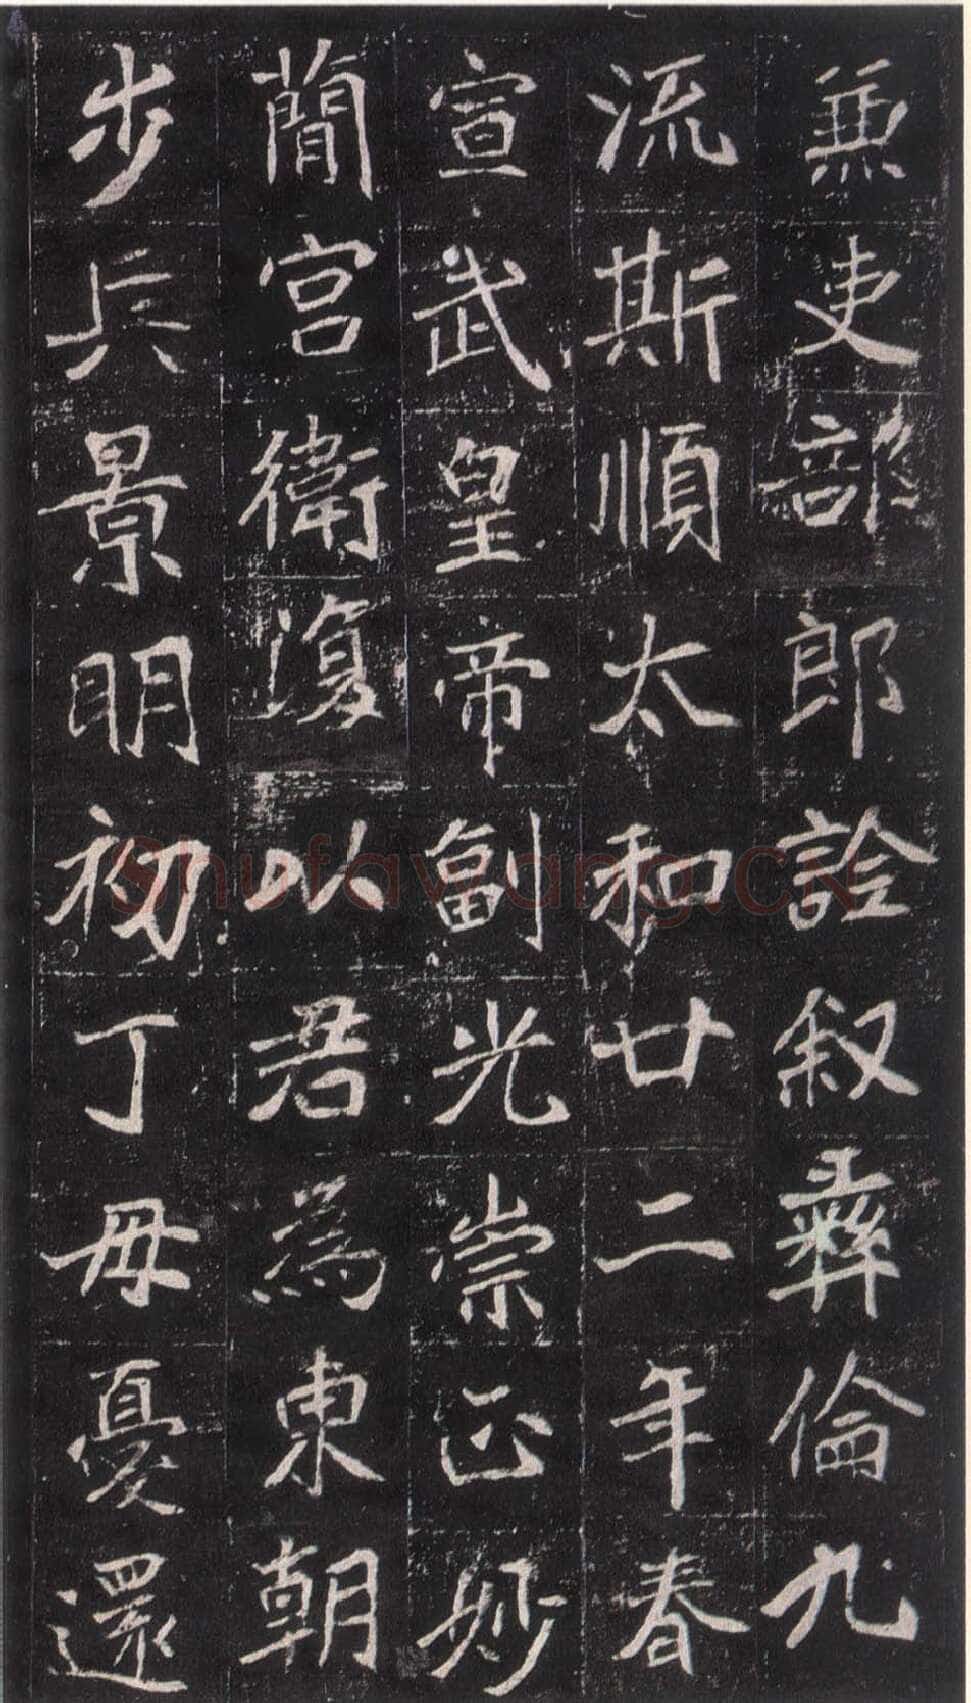 兼吏部郎詮叙彝倫九
流斯順太和廿二年春
宣武皇帝副光崇正妙
簡宮衛復以君為東朝
步兵景明初丁母憂還
shufawang.CN